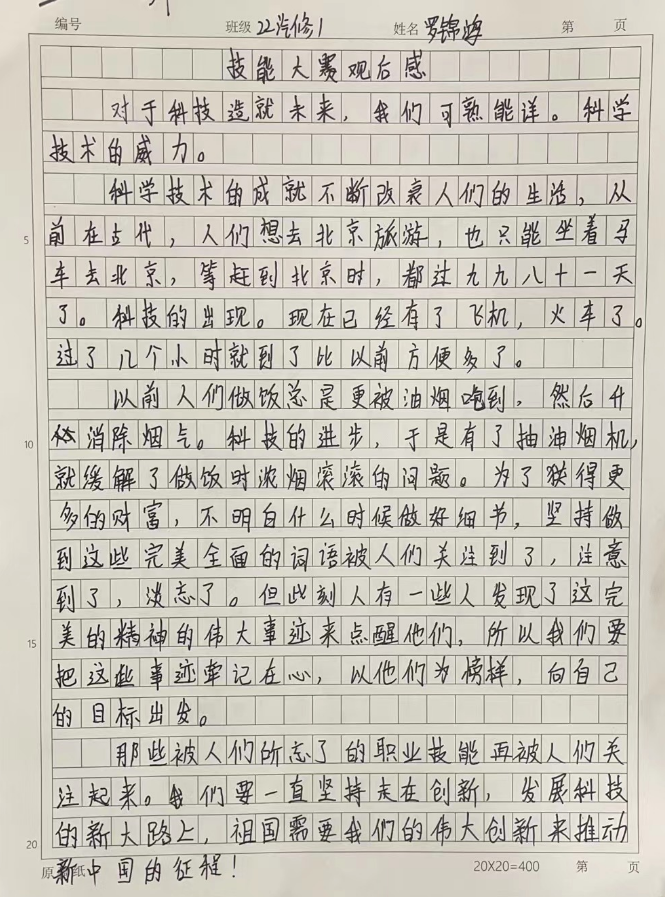 编号 班级 22汽修1 姓名 罗锦鸿 第 页
技能大赛观后感
对于科技造就未来，我们可熟能详。科学
技术的威力。
科学技术的成就不断改衰人们的生活，从
前在古代，人们想去北京旅游，也只能坐着马
车去北京，等赶到北京时，都过九九八十一天
了。科技的出现。现在已经有了飞机，火车了。
过了几个小时就到了比以前方便多了。
以前人们做饭总是更被油烟呛到，然后升
体消除烟气。科技的进步，于是有了抽油烟机，
就缓解了做饭时浓烟滚滚的问题。为了获得更
5
10
多的财富，不明白什么时候做好细节，坚持做
到这些完美全面的词语被人们关注到了，注意
到了，淡忘了。但此刻人有一些人发现了这完
美的精神的伟大事迹来点醒他们，所以我们要
15
把这些事迹牢记在心，以他们为榜样，向自己
的目标出发。
那些被人们所忘了的职业技能再被人们关
注起来。我们要一直坚持走在创新，发展科技
的新大路上，祖国需要我们的伟大创新来推动
20
新中国的征程！
20X20=400 第 页